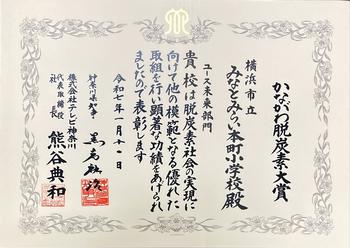 かながわ脱炭素大賞
横浜市立
みなとみらい本町小学校殿
ユース未来部門
貴校は脱炭素社会の実現に
向けて他の模範となる優れた
取組を行い顕著な功績をあげられ
ましたので表彰します
令和七年一月十一日
神奈川県知事 黒岩祐治
株式会社テレビ神奈川
代表取締役社長 熊谷典和